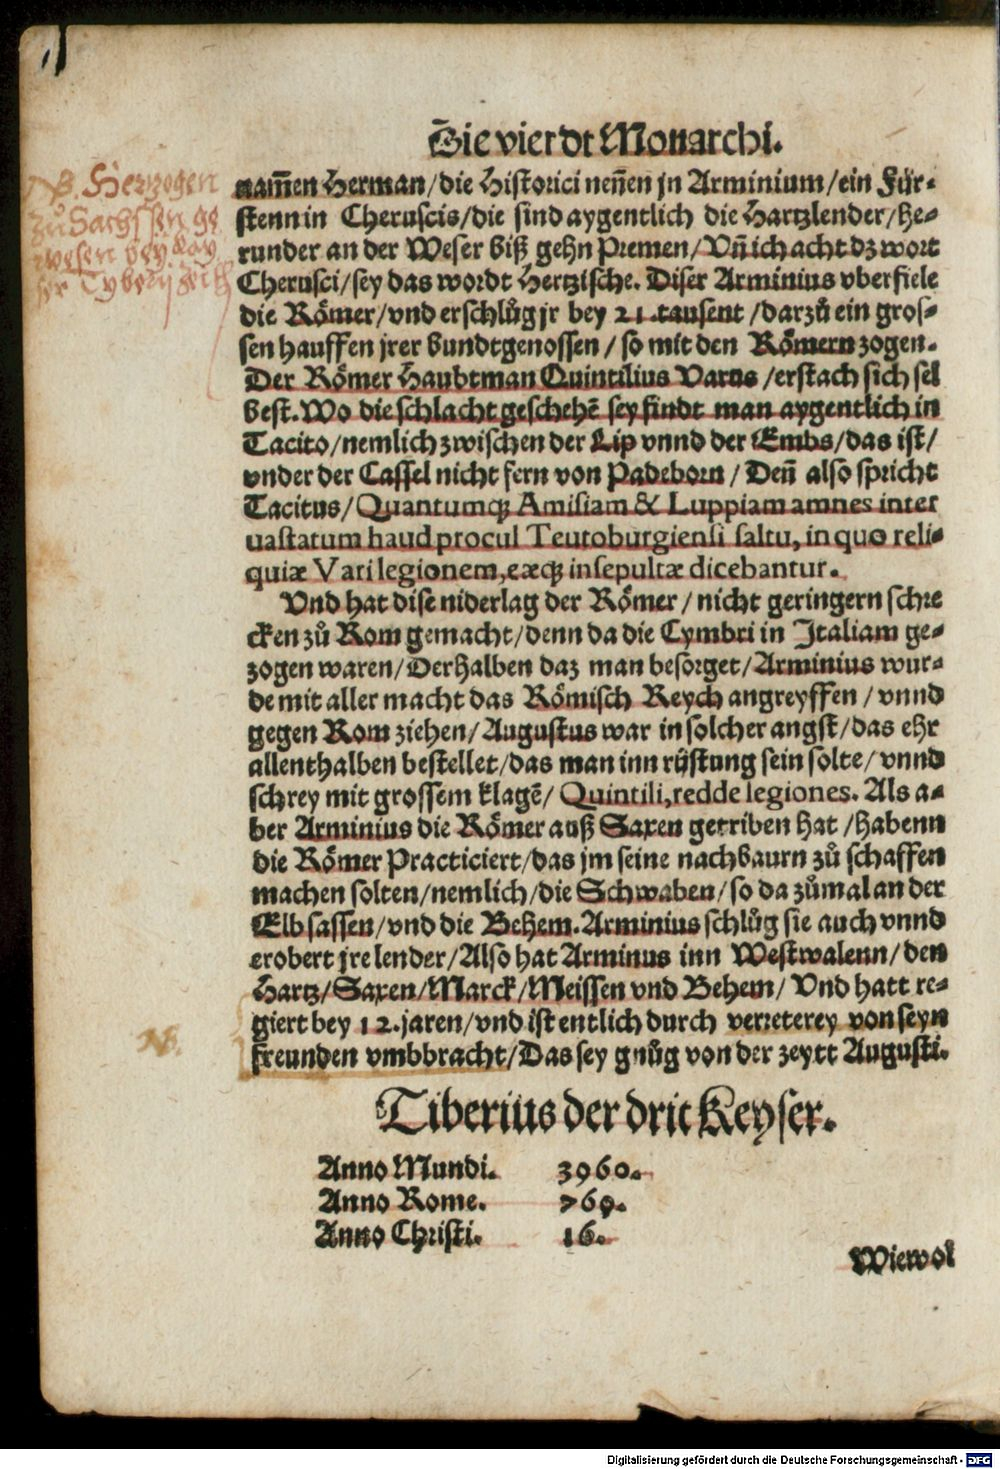 Die vierdt Monarchi.
nam̃en Herman/die Historici neñen jn Arminium/ein Für-
stenn in Cheruscis/die sind aygentlich die Hartzlender/he-
runder an der Weser biß gehn Premen/Vñ ich acht dz wort
Cherusci/sey das wordt Hertzische. Diser Arminius vberfiele
die Römer/vnd erschlůg jr bey 21. tausent/darzů ein gros-
sen hauffen jrer bundtgenossen/so mit den Römern zogen.
Der Römer Haubtman Quintilius Varus/erstach sich sel
best. Wo die schlacht geschehẽ sey findt man aygentlich in
Tacito/nemlich zwischen der Lip vnnd der Embs/das ist/
vnder der Cassel nicht fern von Padeborn/Deñ also spricht
Tacitus/Quantumq; Amisiam & Luppiam amnes inter
uastatum haud procul Teutoburgiensi saltu, in quo reli-
quiæ Vari legionem, eæq; insepultæ dicebantur.
Vnd hat dise niderlag der Römer/nicht geringern schre
cken zů Rom gemacht/denn da die Cymbri in Italiam ge-
zogen waren/Derhalben daz man besorget/Arminius wur-
de mit aller macht das Römisch Reych angreyffen/vnnd
gegen Rom ziehen/Augustus war in solcher angst/das ehr
allenthalben bestellet/das man inn rüstung sein solte/vnnd
schrey mit grossem klagẽ/Quintili, redde legiones. Als a-
ber Arminius die Römer auß Saxen getriben hat/habenn
die Römer Practiciert/das jm seine nachbaurn zů schaffen
machen solten/nemlich/die Schwaben/so da zůmal an der
Elb sassen/vnd die Behem. Arminius schlůg sie auch vnnd
erobert jre lender/Also hat Arminus inn Westwalenn/den
Hartz/Saxen/Marck/Meissen vnd Behem/Vnd hatt re-
giert bey 12. jaren/vnd ist entlich durch verreterey von seyn
freunden vmbbracht/Das sey gnůg von der zeytt Augusti.
Tiberius der drit Keyser.
Anno Mundi. 3960.
Anno Rome. 769.
Anno Christi. 16.
Wiewol
NB. Hertzogen
zů Sachssen ge
wesen bey Kay
ser Tyberij
NB.
Digitalisierung gefördert durch die Deutsche Forschungsgemeinschaft - DFG